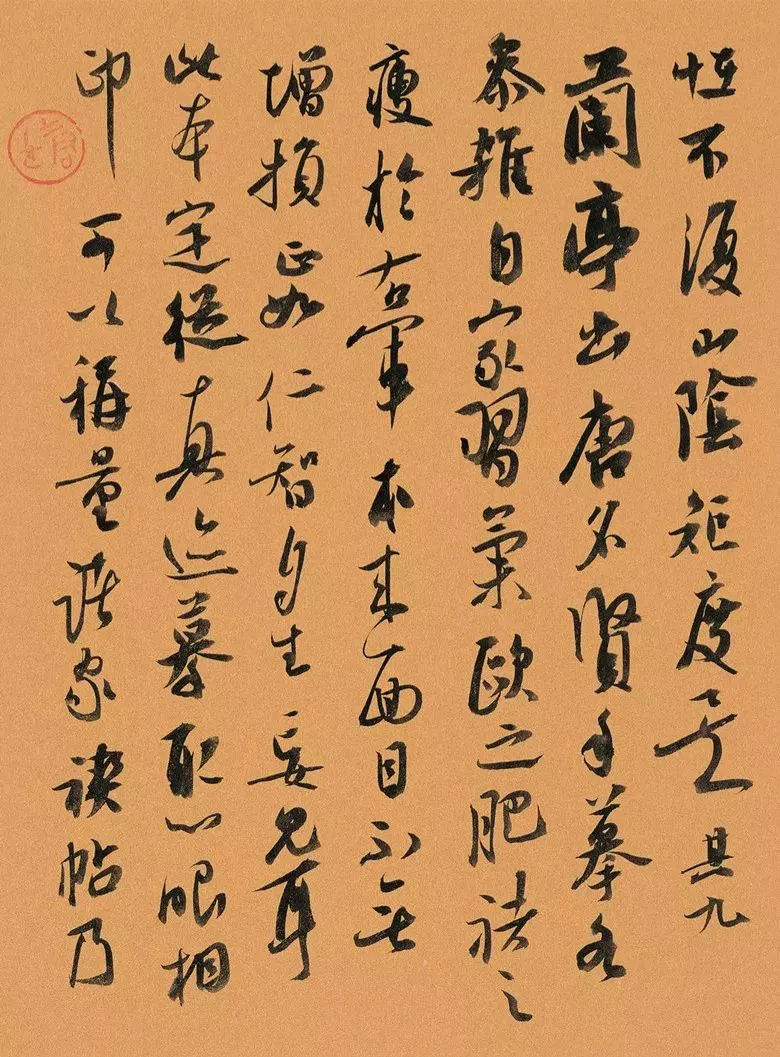 恆不復山陰矩度 其九
蘭亭出唐名賢手摹各
參雜自家習氣歐之肥褚之
瘦於右軍本來面目不無
增損正如仁智自生妄見耳
此本定從真迹摹取心眼相
印可以稱量諸家禊帖乃